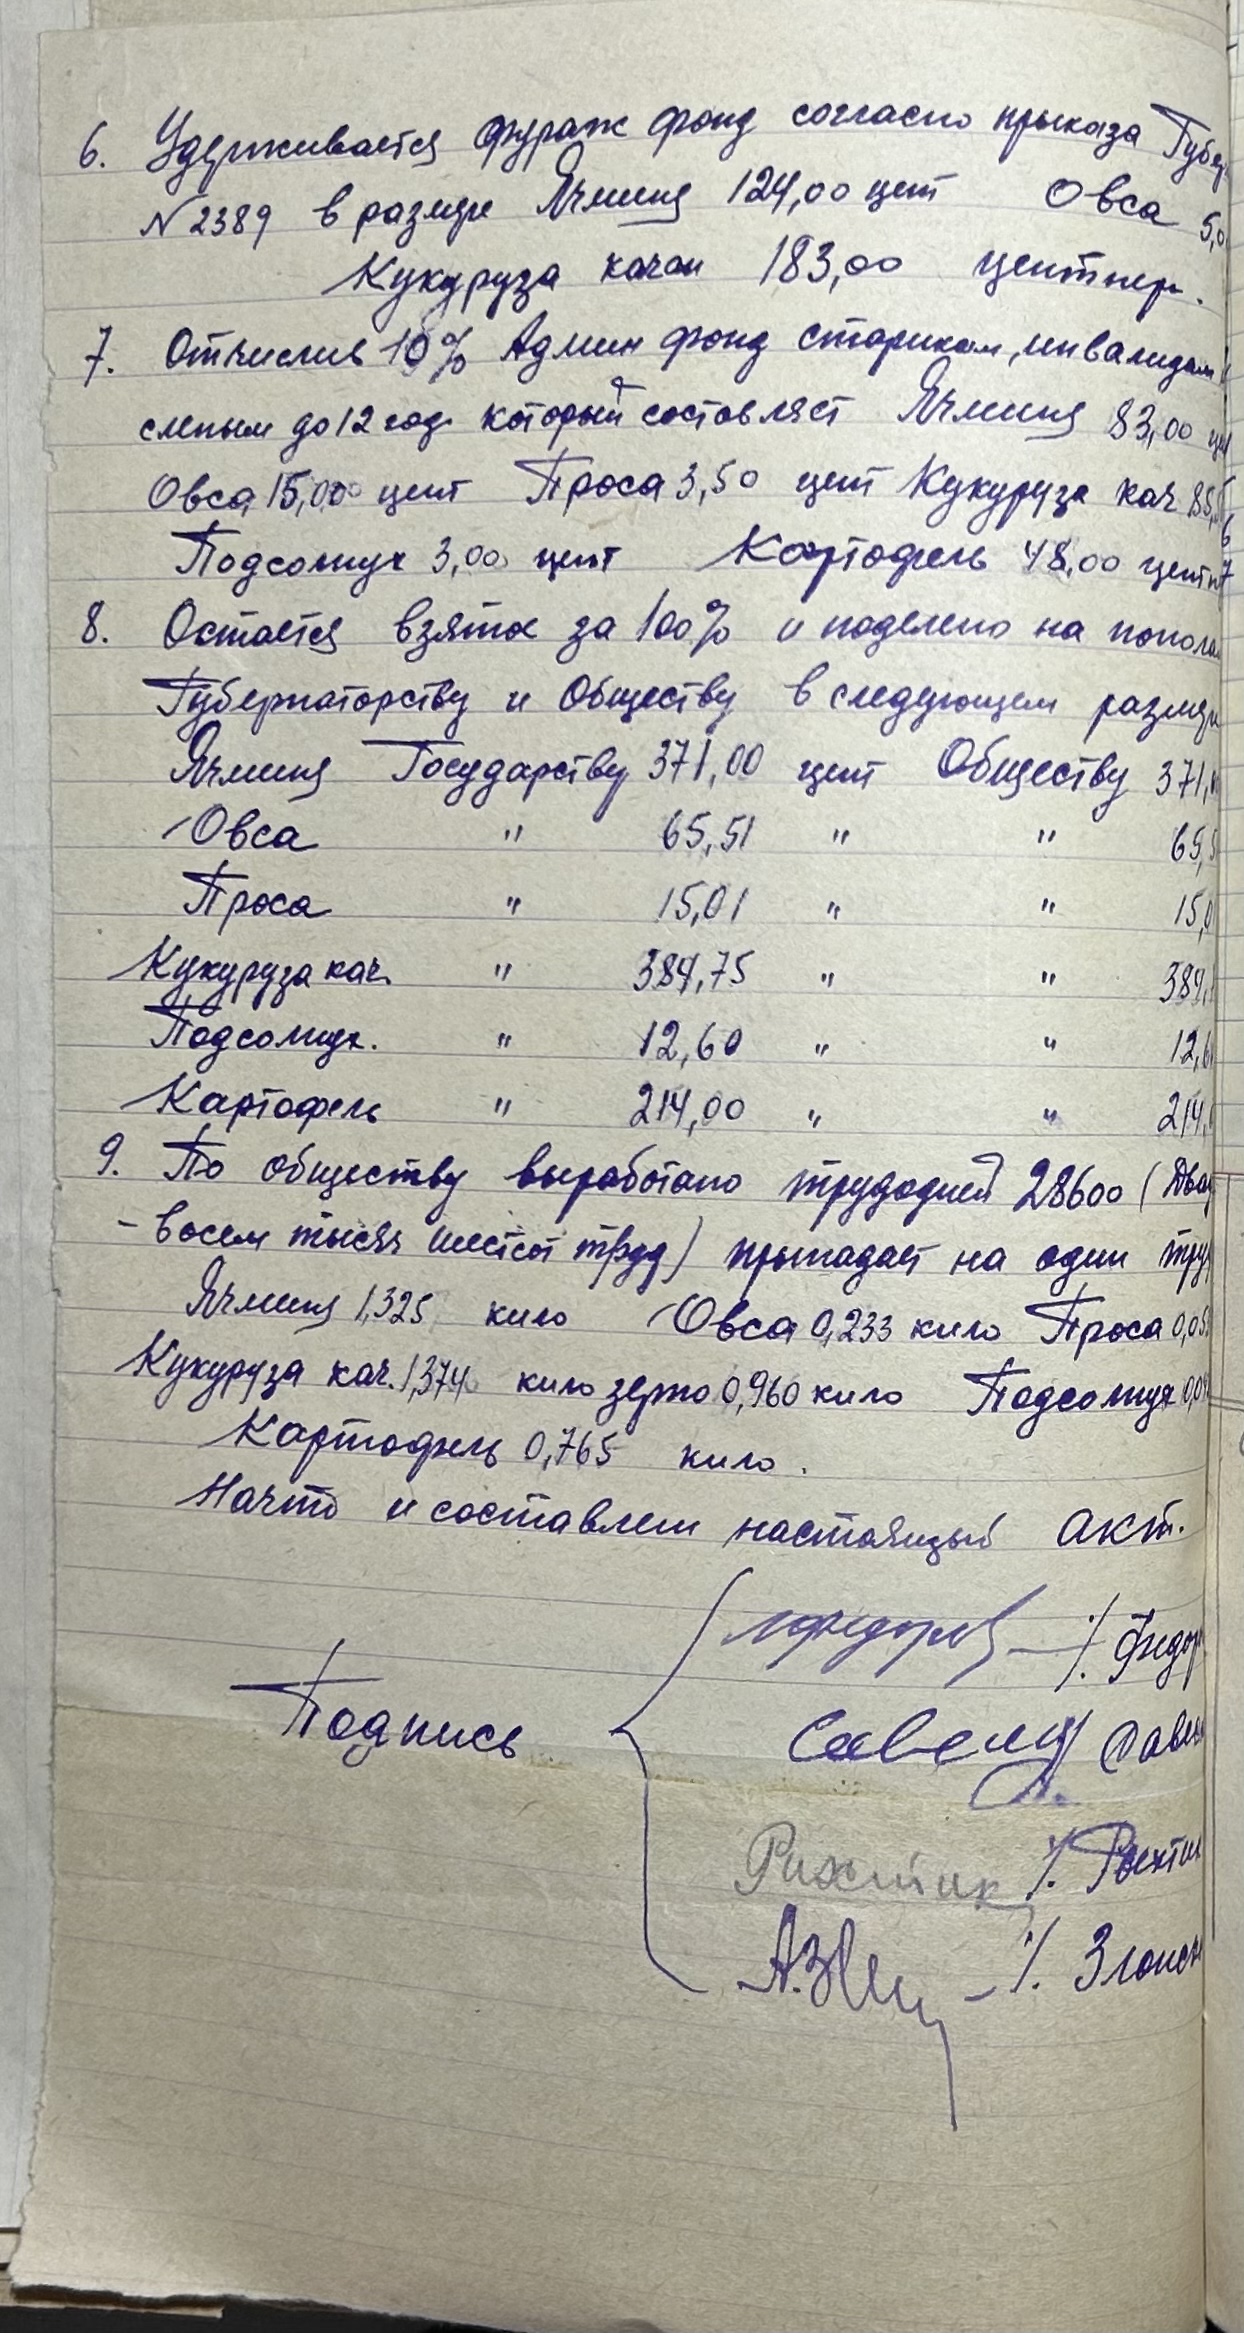 6. Удерживается фураж фонд согласно приказа Губер
N 2389 в размере Ячменя 124,00 цент Овса 5,0
Кукуруза качан 183,00 центнер.
7. Отчислив 10% Админ фонд старикам, инвалидам
слепым до 12 год который составляет Ячменя 83,00 це
Овса 15,00 цент Проса 3,50 цент Кукуруза кач 85,5
Подсолнух 3,00 цент Картофель 48,00 центн
8. Остается взятое за 100% и поделено на попола
Губернаторству и Обществу в следующем размере
Ячменя Государству 371,00 цент Обществу 371,0
Овса " 65,51 " " 65,5
Проса " 15,01 " " 15,0
Кукуруза кач. " 384,75 " " 384,
Подсолнух. " 12,60 " " 12,6
Картофель " 214,00 " " 214,
9. По обществу выработано трудодней 28600 (Два
- восем тысяч шестсот труд) припадает на один тру
Ячменя 1,325 кило Овса 0,233 кило Проса 0,05
Кукуруза кач. 1,374 кило зерно 0,960 кило Подсолнух 0,04
Картофель 0,765 кило.
Начто и составлен настоящый акт.
Подпись
/. Федор
Савел
Рихтик /. Рихтик
/.